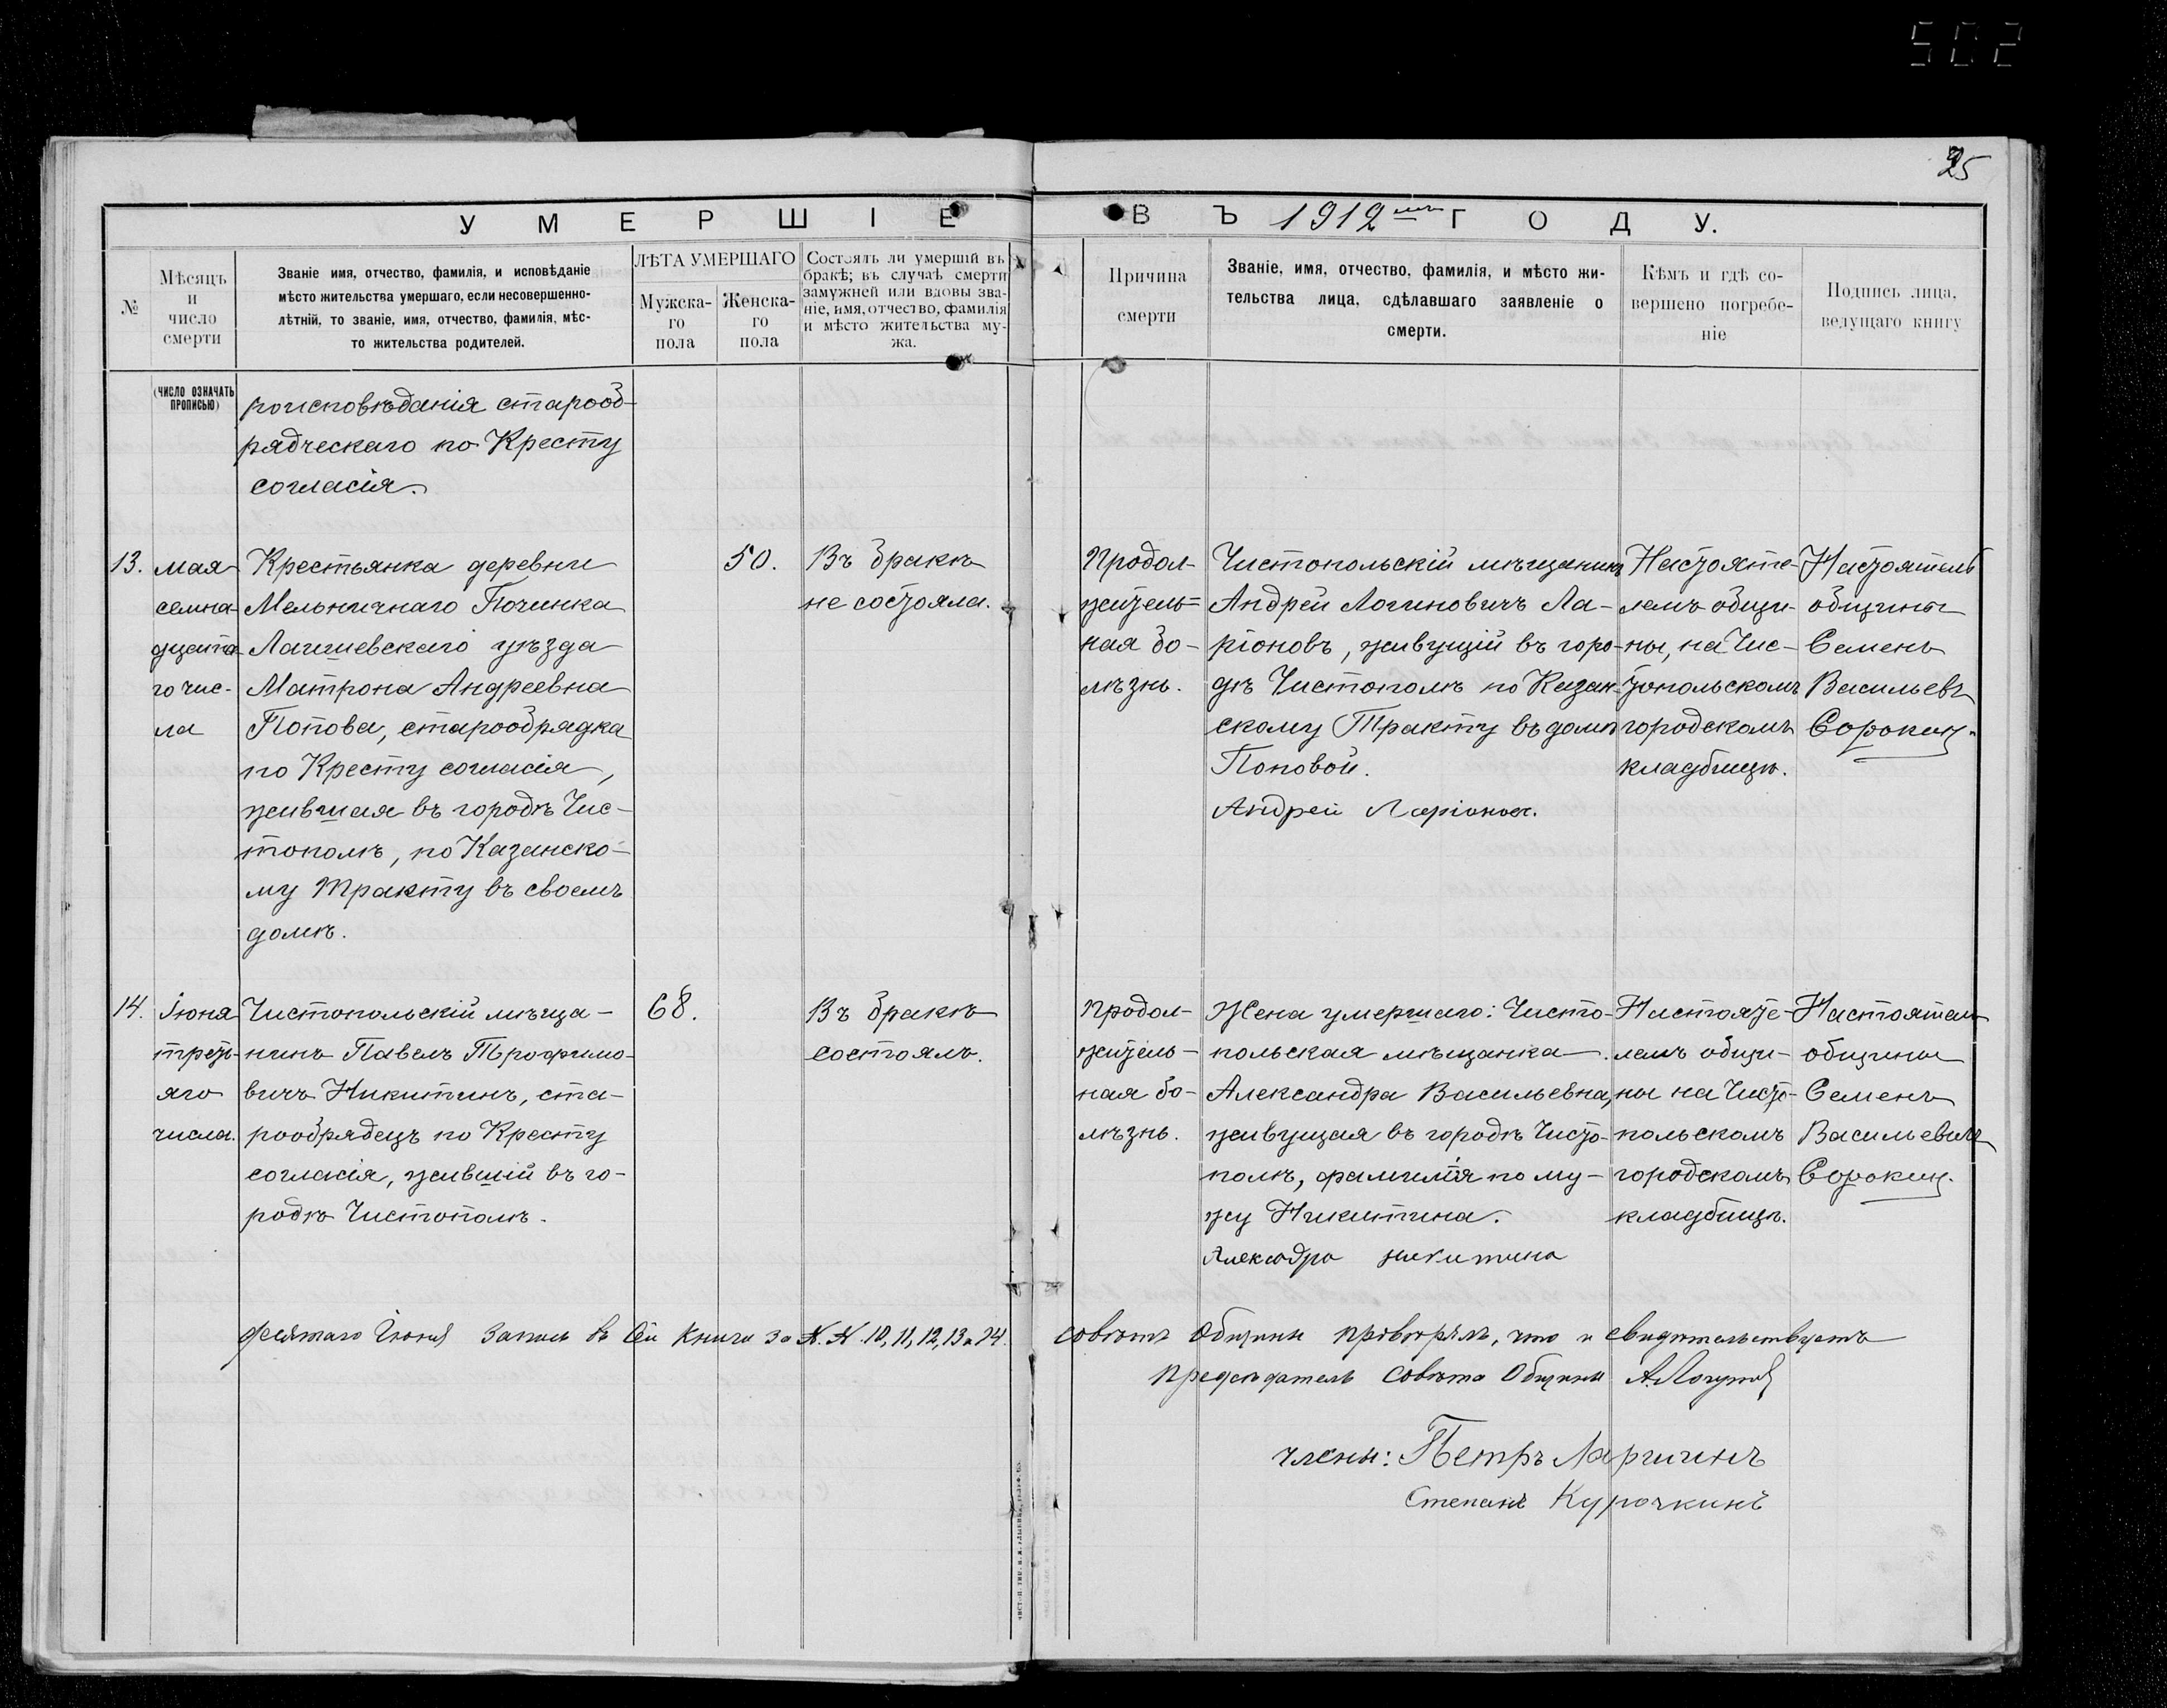 502
25
УМЕРШІЕ ВЪ 1912мъ ГОДУ.
№
Мѣсяцъ
и
число
смерти
Званіе имя, отчество, фамилія, и исповѣданіе
мѣсто жительства умершаго, если несовершенно-
лѣтній, то званіе, имя, отчество, фамилія, мѣс-
то жительства родителей.
ЛѢТА УМЕРШАГО
Мужска-
го
пола
Женска-
го
пола
Состоялъ ли умершій въ
бракѣ; въ случаѣ смерти
замужней или вдовы зва-
ніе, имя, отчество, фамилія
и мѣсто жительства му-
жа.
Причина
смерти
Званіе, имя, отчество, фамилія, и мѣсто жи-
тельства лица, сдѣлавшаго заявленіе о
смерти.
Кѣмъ и гдѣ со-
вершено погребе-
ніе
Подпись лица,
ведущаго книгу
(ЧИСЛО ОЗНАЧАТЬ
ПРОПИСЬЮ)
роисповѣданія старооб-
рядческаго по Кресту
согласія.
13.
мая
семна-
дцата-
го чис-
ла
Крестьянка деревни
Мельничнаго Починка
Лаишевскаго уѣзда
Матрона Андреевна
Попова, старообрядка
по Кресту согласія,
жившая въ городѣ Чис-
тополѣ, по Казанско-
му Тракту въ своемъ
домѣ.
50.
Въ бракѣ
не состояла.
Продол-
житель-
ная бо-
лѣзнь.
Чистопольскій мѣщанинъ
Андрей Логиновичъ Ла-
ріоновъ, живущій въ горо-
дѣ Чистополѣ по Казан-
скому Тракту въ домѣ
Поповой.
Андрей Ларіонов.
Настояте-
лемъ общи-
ны, на Чис-
топольскомъ
городскомъ
кладбищѣ.
Настоятель
общины
Семенъ
Васильевъ
Сорокин.
14.
Іюня
треть-
яго
числа.
Чистопольскій мѣща-
нинъ Павелъ Трофимо-
вичъ Никитинъ, ста-
рообрядецъ по Кресту
согласія, жившій въ го-
родѣ Чистополѣ.
68.
Въ бракѣ
состоялъ.
Продол-
житель-
ная бо-
лѣзнь.
Жена умершаго: Чисто-
польская мѣщанка
Александра Васильевна,
живущая въ городѣ Чисто-
полѣ, фамилія по му-
жу Никитина.
Алексадра никитина
Настояте-
лемъ общи-
ны на Чисто-
польскомъ
городскомъ
кладбищѣ.
Настоятель
общины
Семенъ
Васильевич
Сорокин.
Іюня запись въ сей книги за №.№ 10, 11, 12, 13 и 14. совѣтъ Общины провѣрялъ, что и свидѣтельствуетъ
Предсѣдатель Совѣта Общины
члены: Петръ Ларгинъ
Степанъ Курочкинъ